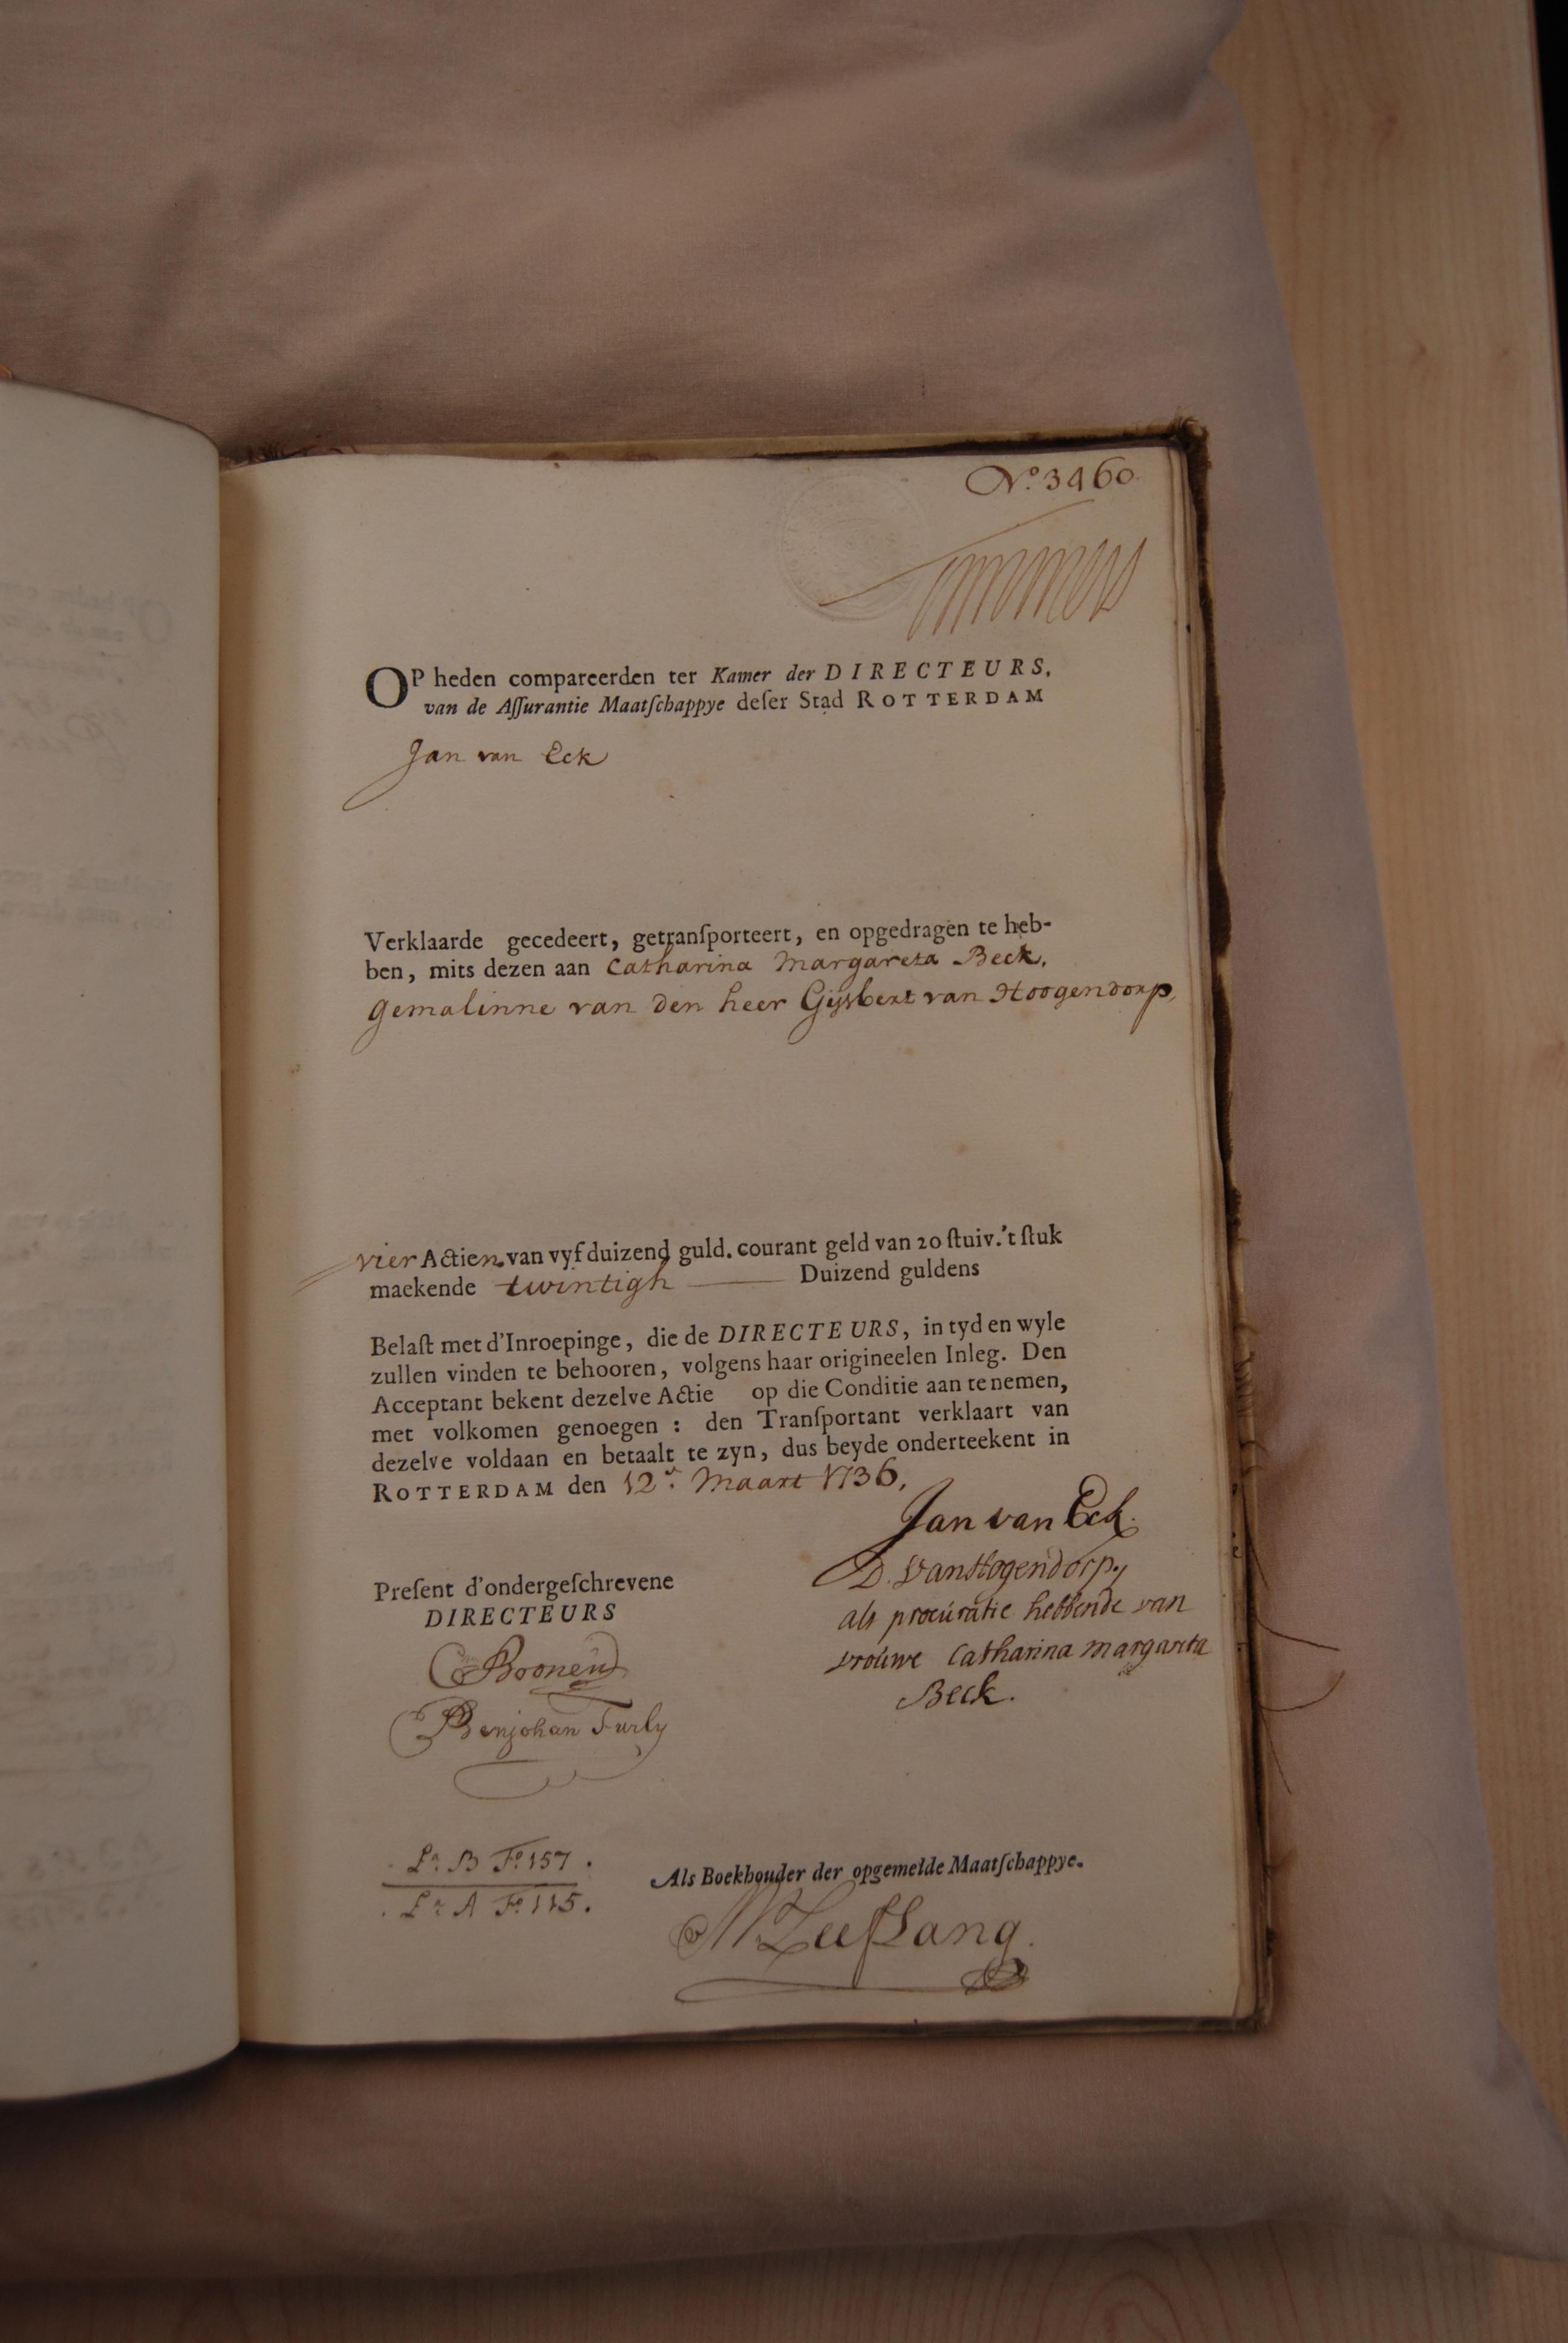 No. 3460
OP heden compareerden ter Kamer der DIRECTEURS,
van de Aſſurantie Maatſchappye deſer Stad ROTTERDAM
Jan van Eck
Verklaarde gecedeert, getranſporteert, en opgedragen te heb-
ben, mits dezen aan Catharina Margareta Beck,
Gemalinne van den heer Gijsbert van Hoogendorp,
vier Actien van vyf duizend guld. courant geld van 20 ſtuiv. 't ſtuk
maekende twintigh Duizend guldens
Belaſt met d'Inroepinge, die de DIRECTEURS, in tyd en wyle
zullen vinden te behooren, volgens haar origineelen Inleg. Den
Acceptant bekent dezelve Actie op die Conditie aan te nemen,
met volkomen genoegen : den Tranſportant verklaart van
dezelve voldaan en betaalt te zyn, dus beyde onderteekent in
ROTTERDAM den 12e. Maart 1736,
Jan van Eck.
D. van Hogendorp,
als procúratie hebbende van
vroúwe Catharina Margareta
Beck.
Preſent d'ondergeſchrevene
DIRECTEURS
Boonen
Benjohan Furly
La. B Fo. 157.
La. A Fo. 115.
Als Boekhouder der opgemelde Maatſchappye.
Leeflang.